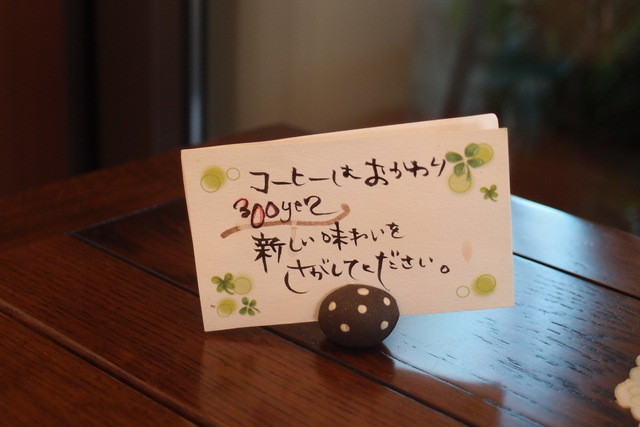 コーヒーはおかわり
300yen
新しい味わいを
さがしてください。